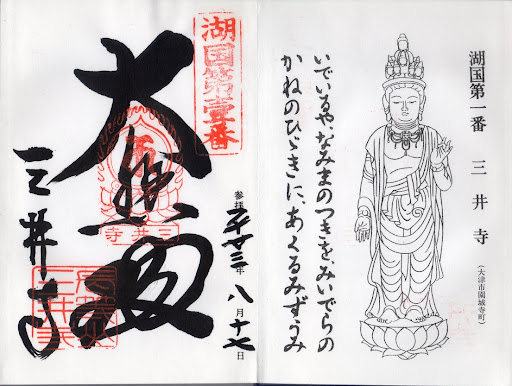 湖国第一番　三井寺
(大津市園城寺町)
いでいるや、なみまのつきを、みいでらの
かねのひゞきに、あくるみずうみ
湖国第壹番
参拝 平廿三年 八月十七日
大
三井寺
三井寺